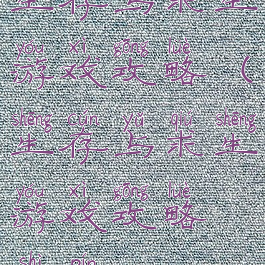 生存与求生
yóu xì gōng lüè
游戏攻略（
shēng cún yǔ qiú shēng
生存与求生
yóu xì gōng lüè
游戏攻略